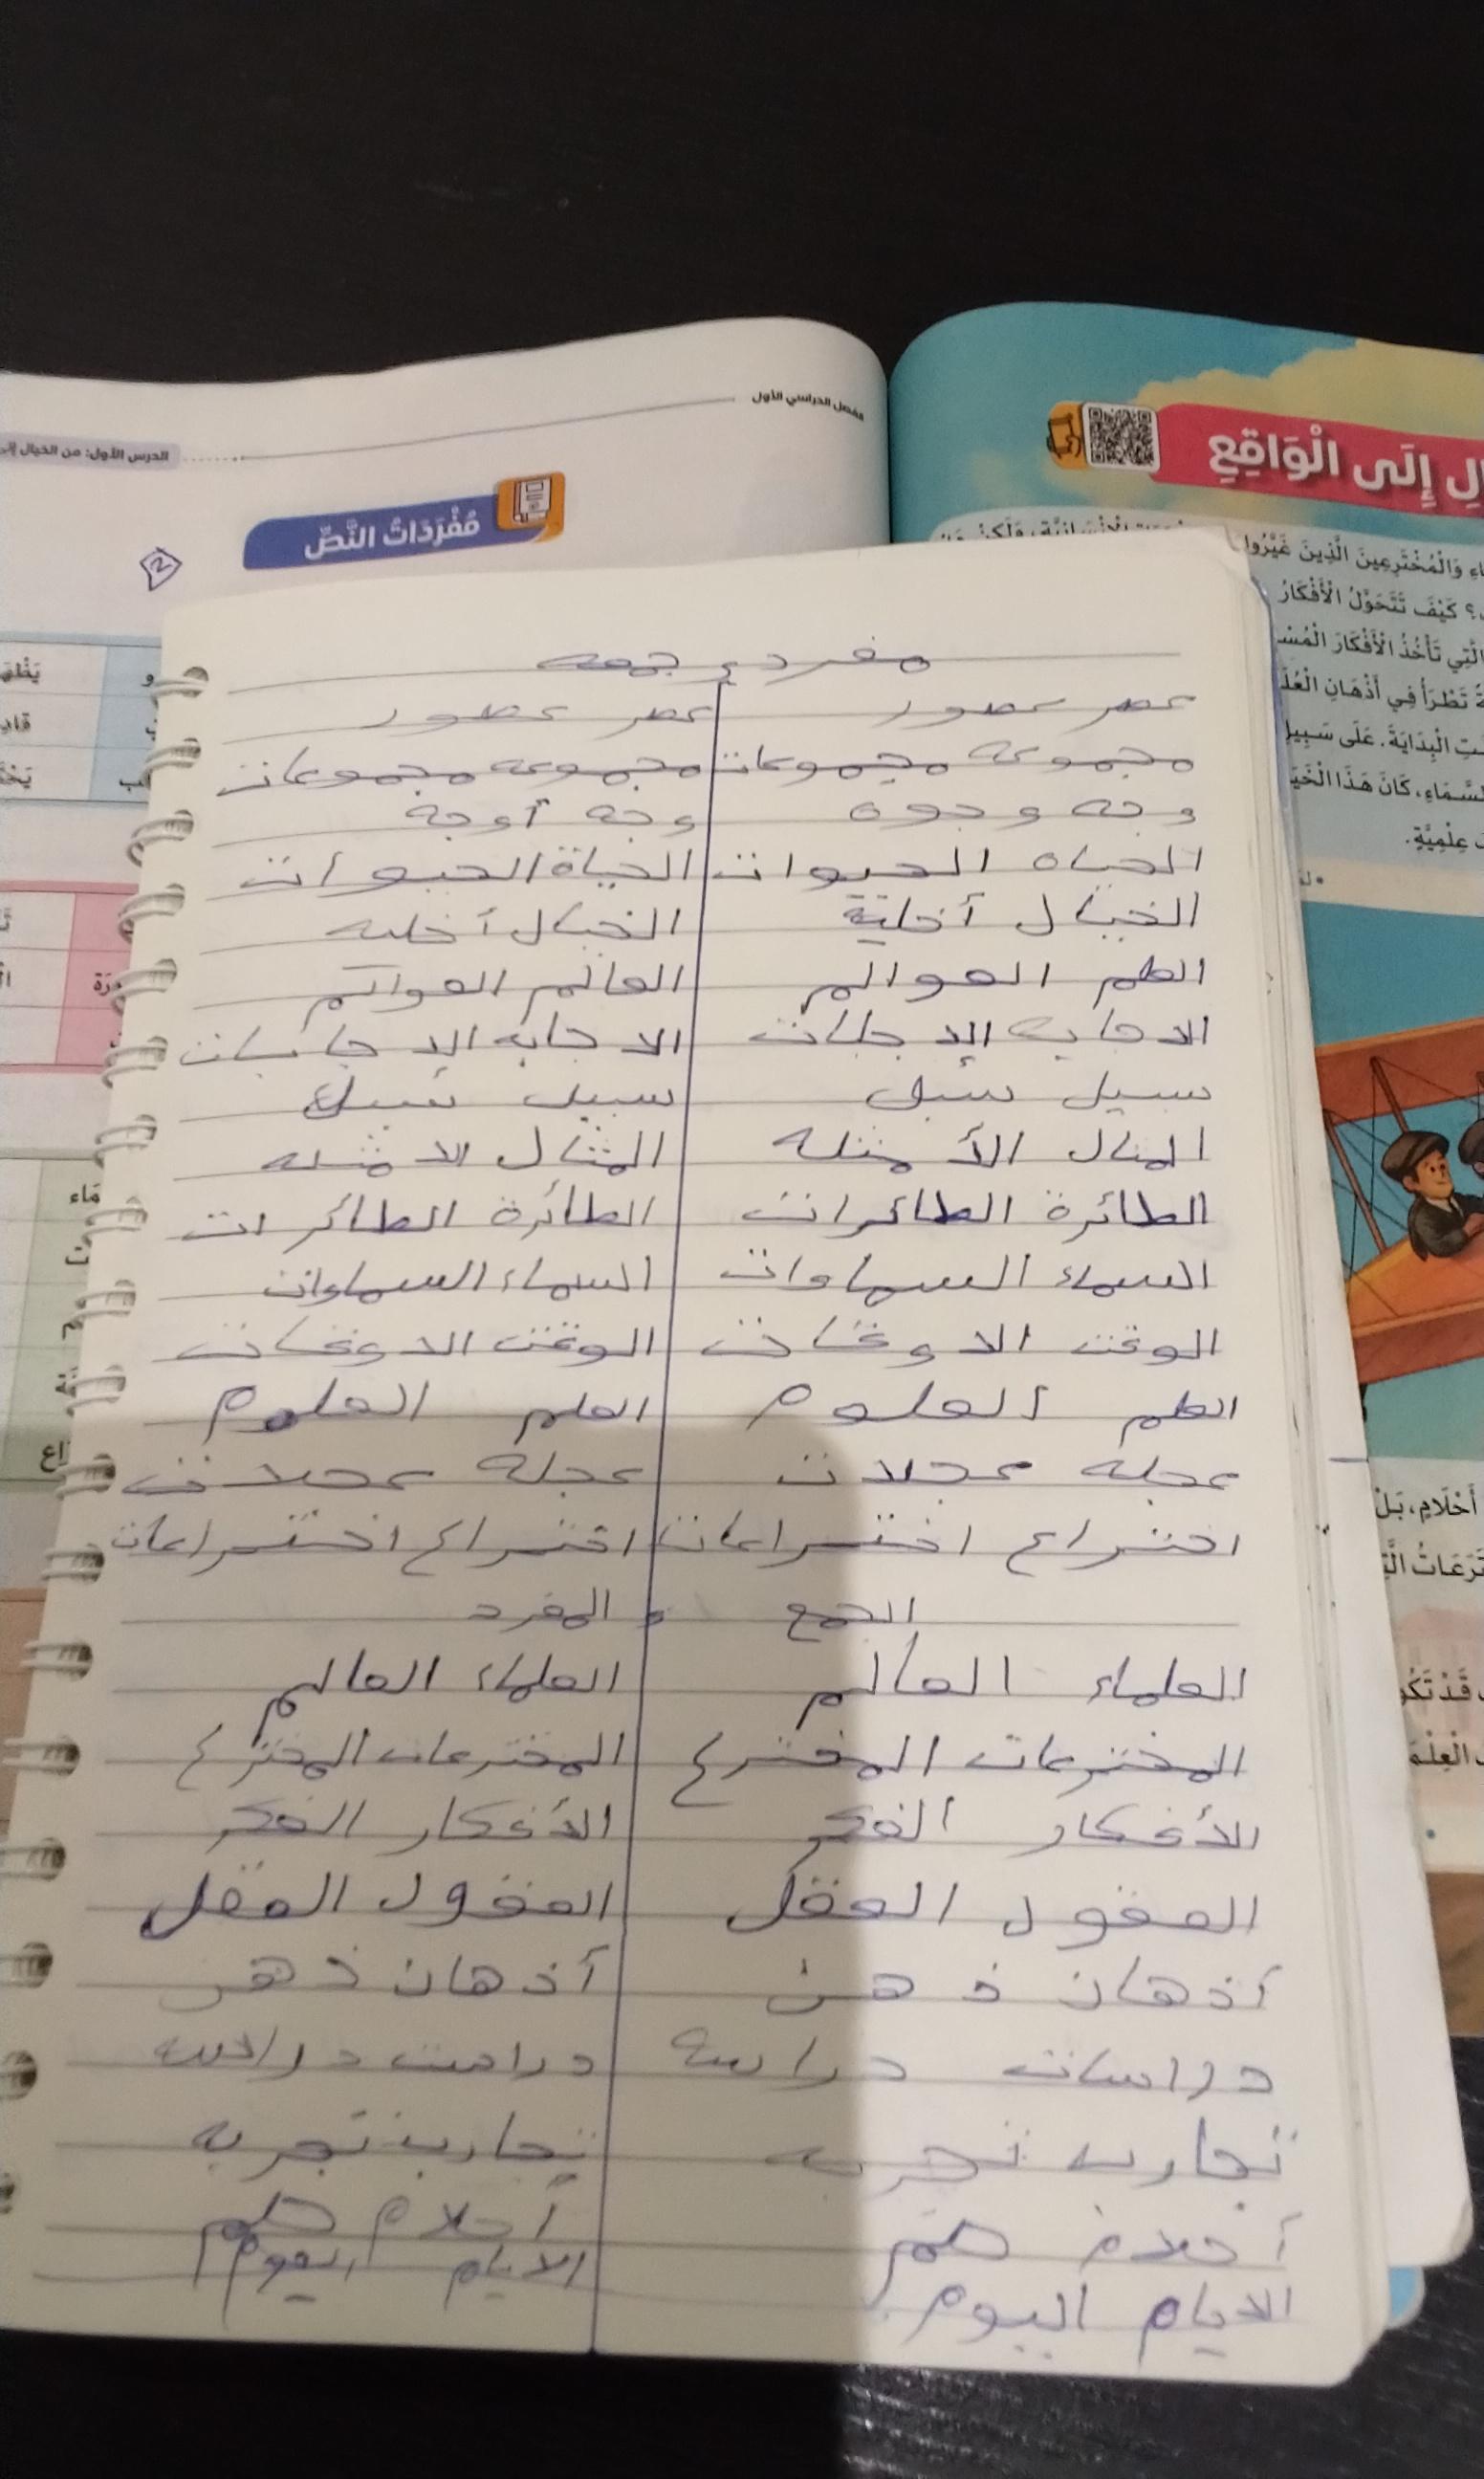 الفصل الدراسي الأول
الدرس الأول: من الخيال إلى
مُفْرَدَاتُ النَّصِّ
2
إِلَى الْوَاقِعِ
وَالْمُخْتَرِعِينَ الَّذِينَ غَيَّرُوا
كَيْفَ تَتَحَوَّلُ الْأَفْكَارُ
الَّتِي تَأْخُذُ الْأَفْكَارَ
تَطْرَأُ فِي أَذْهَانِ
الْبِدَايَةَ. عَلَى
كَانَ هَذَا
عِلْمِيَّةٍ.
مفرد و جمعه
عصر عصور عصر عصور
مجموعه مجموعات مجموعه مجموعات
وجه وجوه وجه أوجه
الحياه الحيوات الحياة الحيوات
الخيال أخلية الخيال أخليه
العلم العوالم العالم العوالم
الاجابه الإجابات الاجابه الاجابات
سبيل سبل سبيل سبل
المثال الأمثله المثال الامثله
الطائرة الطائرات الطائرة الطائرات
السماء السماوات السماء السماوات
الوقت الاوقات الوقت الاوقات
العلم العلوم العلم العلوم
عجله عجلات عجلة عجلات
اختراع اختراعات اختراع اختراعات
الجمع و المفرد
العلماء العالم العلماء العالم
المخترعات المخترع المخترعات المخترع
الأفكار الفكر الأفكار الفكر
العقول العقل العقول العقل
أذهان ذهن أذهان ذهن
دراسات دراسه دراست دراسه
تجارب تجربه تجارب تجربه
أحلام حلم أحلام حلم
الايام اليوم الايام اليوم
أَحْلَامٍ، بَلْ